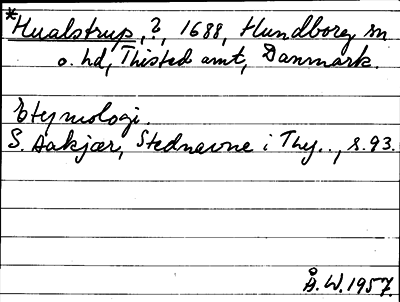 *Hualstrup, ?, 1688, Hundborg sn
o. hd, Thisted amt, Danmark.
Etymologi.
S. Aakjær, Stednavne i Thy.., s. 93.
Å.W. 1957.